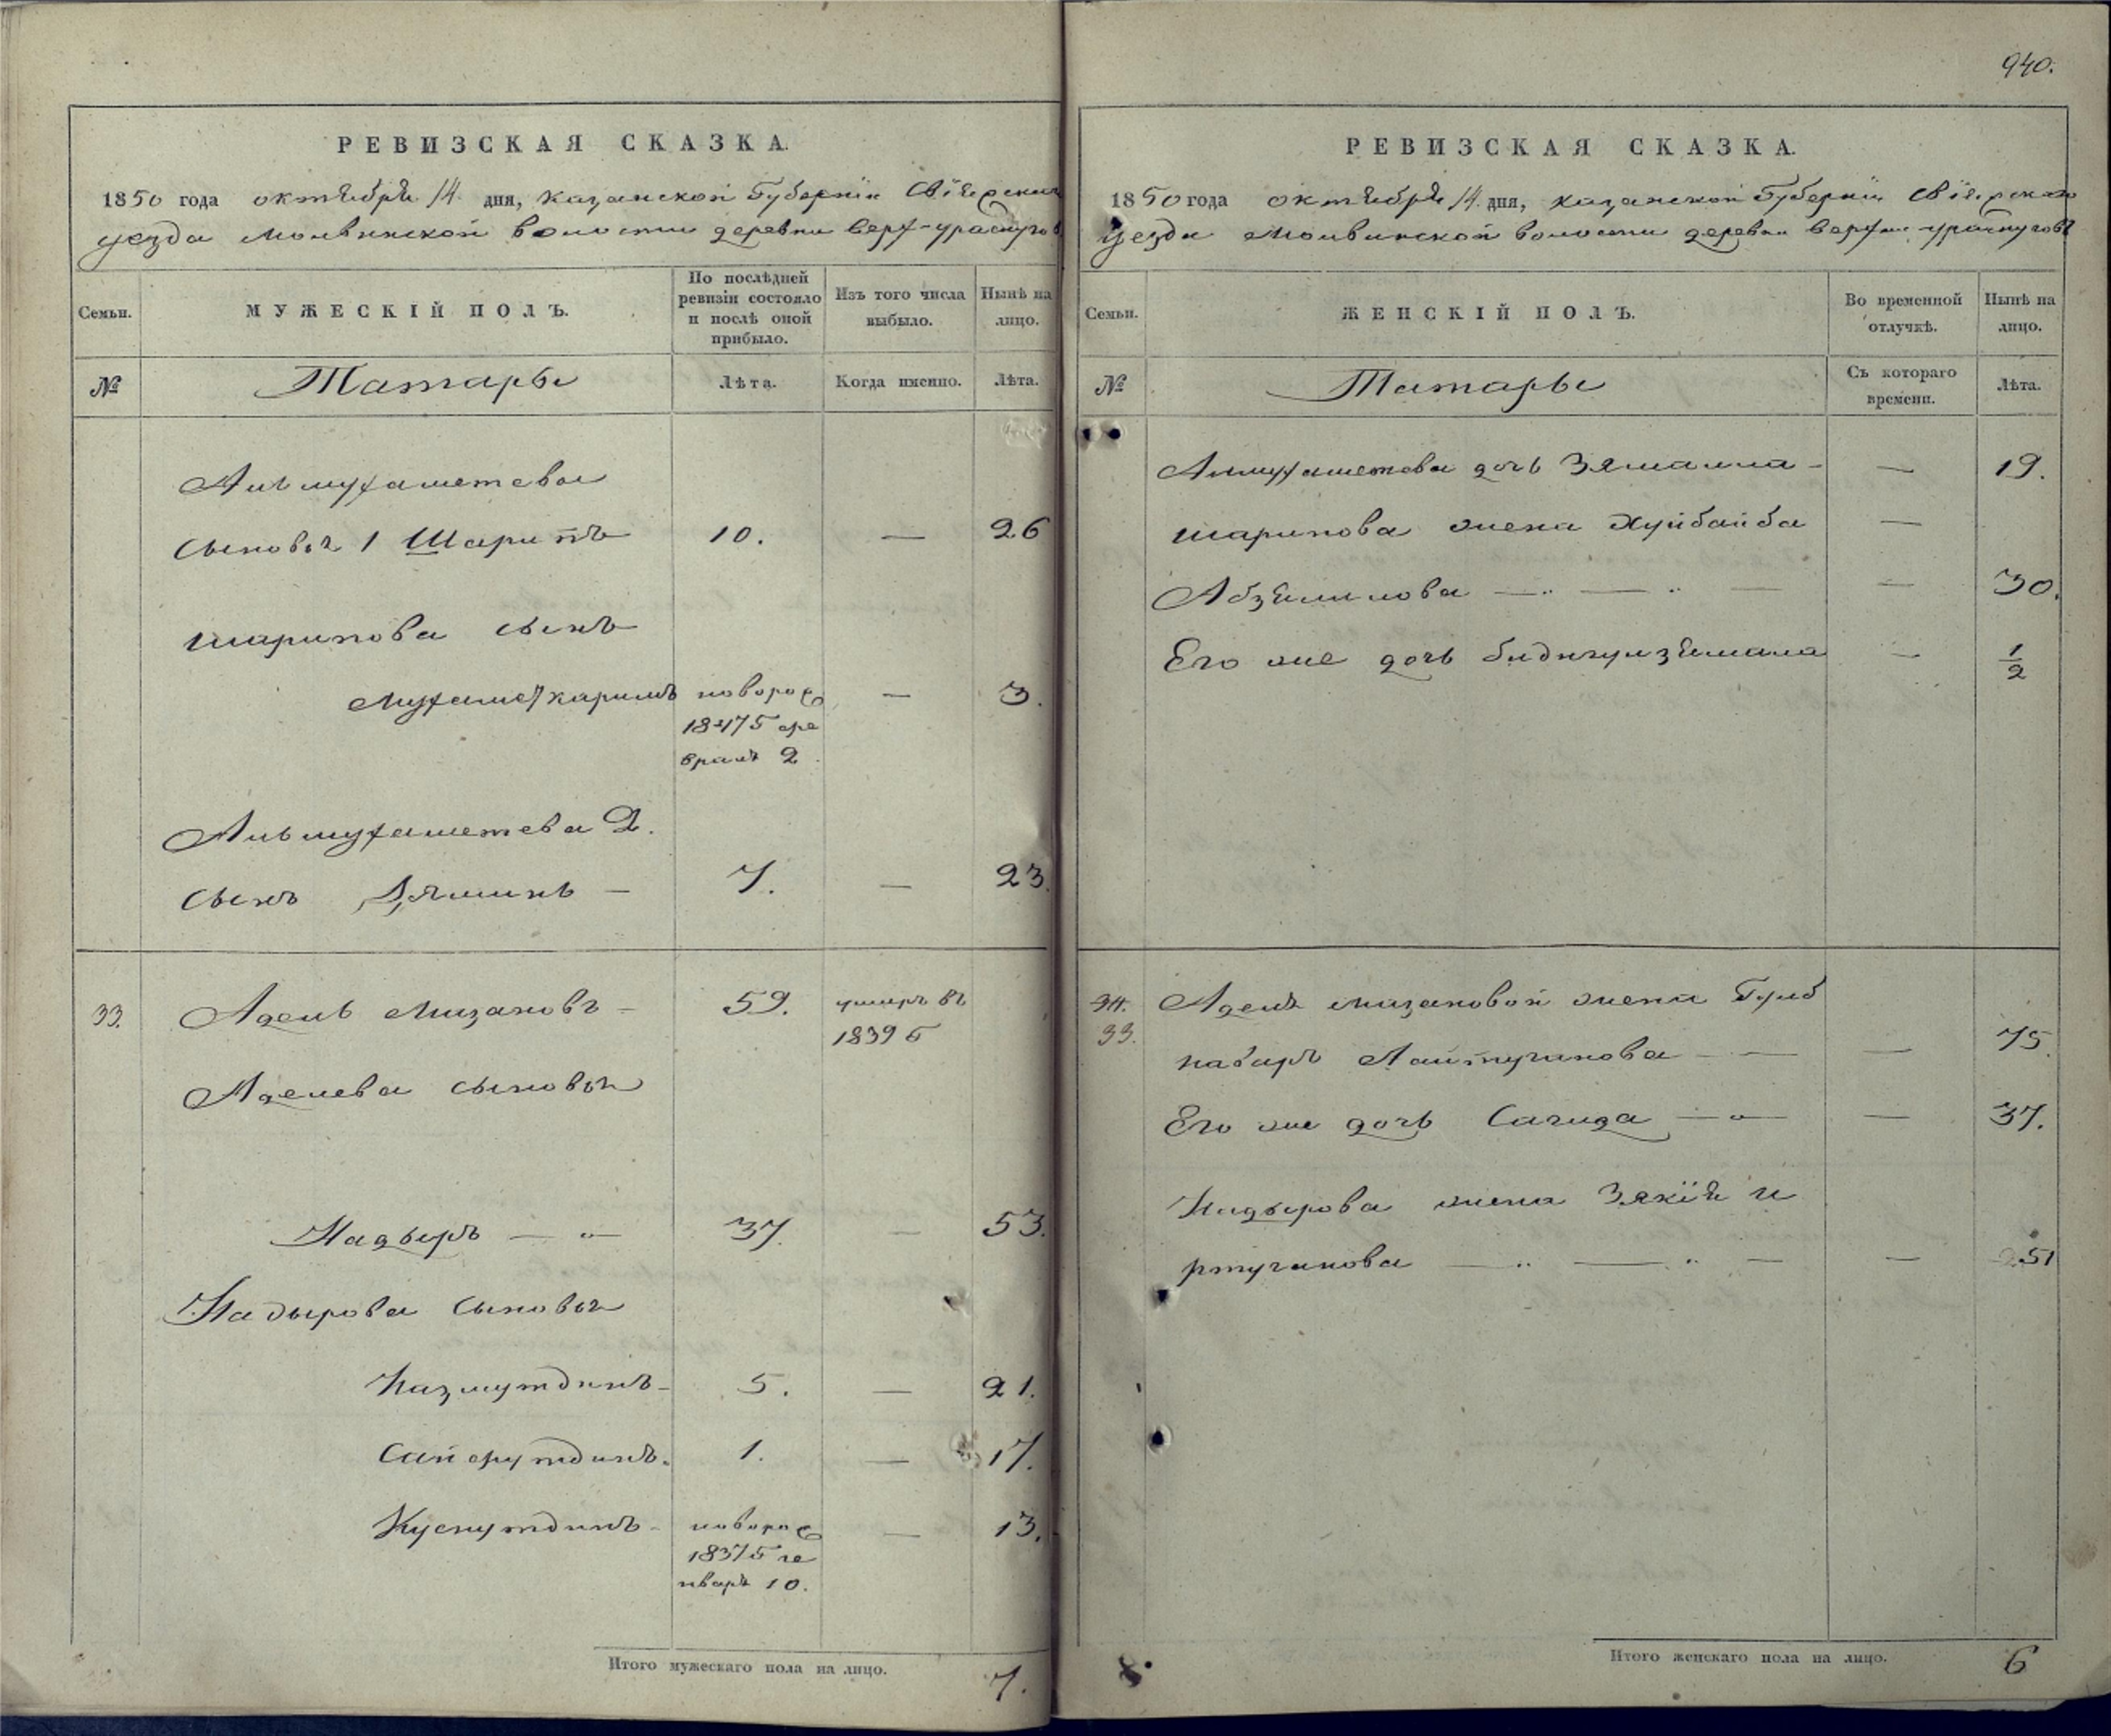 940.
РЕВИЗСКАЯ СКАЗКА.
1850 года октября 14 дня, казанской Губернии Свіяжскаго
уезда Молвинской волости деревни верх-ураспугов
Семьи. МУЖЕСКІЙ ПОЛЪ. По послѣдней ревизіи состояло и послѣ оной прибыло. Изъ того числа выбыло. Нынѣ на лицо.
№ Татары Лѣта. Когда именно. Лѣта.
Альмухаметева
сыновья 1 Шарипъ 10. — 26
шарипова сынъ
Мухаметкаримъ новорож — 3.
1847 г фе
враля 2
Альмухаметева 2.
сынъ Зяминь — 7. — 23.
33. Адель Мизановъ — 59. умеръ въ
1839 г
Аделева сыновья
Надыръ — " — 37. — 53.
Надырова сыновья
Назмутдинъ — 5. — 21.
Сайфутдинъ. 1. — 17.
Хуснутдинъ — новорож — 13.
1837 г ге
нваря 10.
Итого мужескаго пола на лицо. 7.
РЕВИЗСКАЯ СКАЗКА.
1850 года октября 14 дня, казанской Губернии Свіяжскаго
уезда Молвинской волости деревни верхн урспугов
Семьи. ЖЕНСКІЙ ПОЛЪ. Во временной отлучкѣ. Нынѣ на лицо.
№ Татары Съ котораго времени. Лѣта.
Алмухаметева дочь Зямалиа — — 19.
шарипова жена Хуйбайба —
Абзялилова — " — " — — 30.
Его же дочь бидигулзямала — 1/2
34. Аделя Мизановой жена Гулб
33. набаръ Аайтуганова — — — 75.
Его же дочь Сагида — " — — 37.
Надырова жена Зякія И
ртуганова — " — " — — 51
Итого женскаго пола на лицо. 6